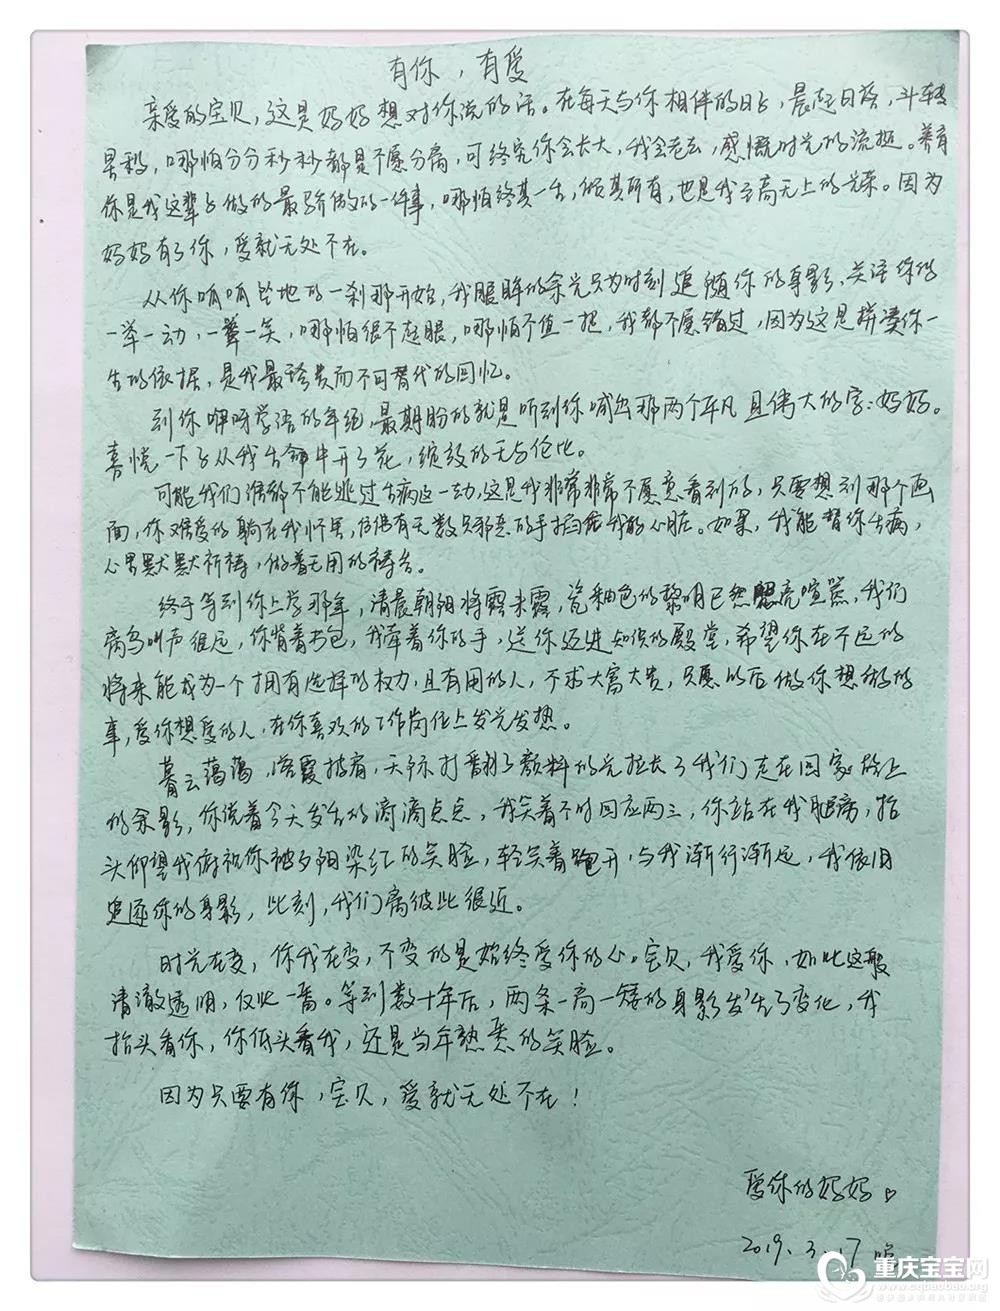 有你，有爱
亲爱的宝贝，这是妈妈想对你说的话。在每天与你相伴的日子，晨起日落，斗转
星移，哪怕分分秒秒都是不愿分离，可终究你会长大，我会老去，感慨时光的流逝。养育
你是我这辈子做的最骄傲的一件事，哪怕终其一生，倾其所有，也是我至高无上的光荣。因为
妈妈有了你，爱就无处不在。
从你呱呱坠地的一刹那开始，我眼眸的余光只为时刻追随你的身影、关注你的
一举一动，一颦一笑，哪怕很不起眼，哪怕不值一提，我都不愿错过，因为这是拼凑你一
生的依据，是我最珍贵而不可替代的回忆。
到你咿呀学语的年纪，最期盼的就是听到你喊出那两个平凡且伟大的字：妈妈。
喜悦一下子从我生命中开了花，绽放的无与伦比。
可能我们谁都不能逃过生病这一劫，这是我非常非常不愿意看到的，只要想到那个画
面，你难受的躺在我怀里，仿佛有无数只邪恶的手掐住我的心脏。如果，我能替你生病，
心里默默祈祷，做着无用的祷告。
终于等到你上学那年，清晨朝阳将露未露，瓷釉色的黎明已然照亮喧嚣，我们
离鸟叫声很近，你背着书包，我牵着你的手，送你迈进知识的殿堂，希望你在不远的
将来能成为一个拥有选择的权力，且有用的人，不求大富大贵，只愿以后做你想做的
事，爱你想爱的人，在你喜欢的工作岗位上发光发热。
暮云蔼蔼，落霞披肩，天际打翻了颜料的光拉长了我们走在回家路上
的余影，你说着今天发生的滴滴点点，我笑着不时回应两三，你站在我腿旁，抬
头仰望我俯视你被夕阳染红的笑脸，轻笑着跑开，与我渐行渐远，我依旧
追逐你的身影，此刻，我们离彼此很近。
时光在变，你我在变，不变的是始终爱你的心。宝贝，我爱你，如此这般
清澈透明，仅此一番。等到数十年后，两条一高一矮的身影发生了变化，我
抬头看你，你低头看我，还是当年熟悉的笑脸。
因为只要有你，宝贝，爱就无处不在！
爱你的妈妈
2019.3.17晚
重庆宝宝网
www.cqbaobao.org